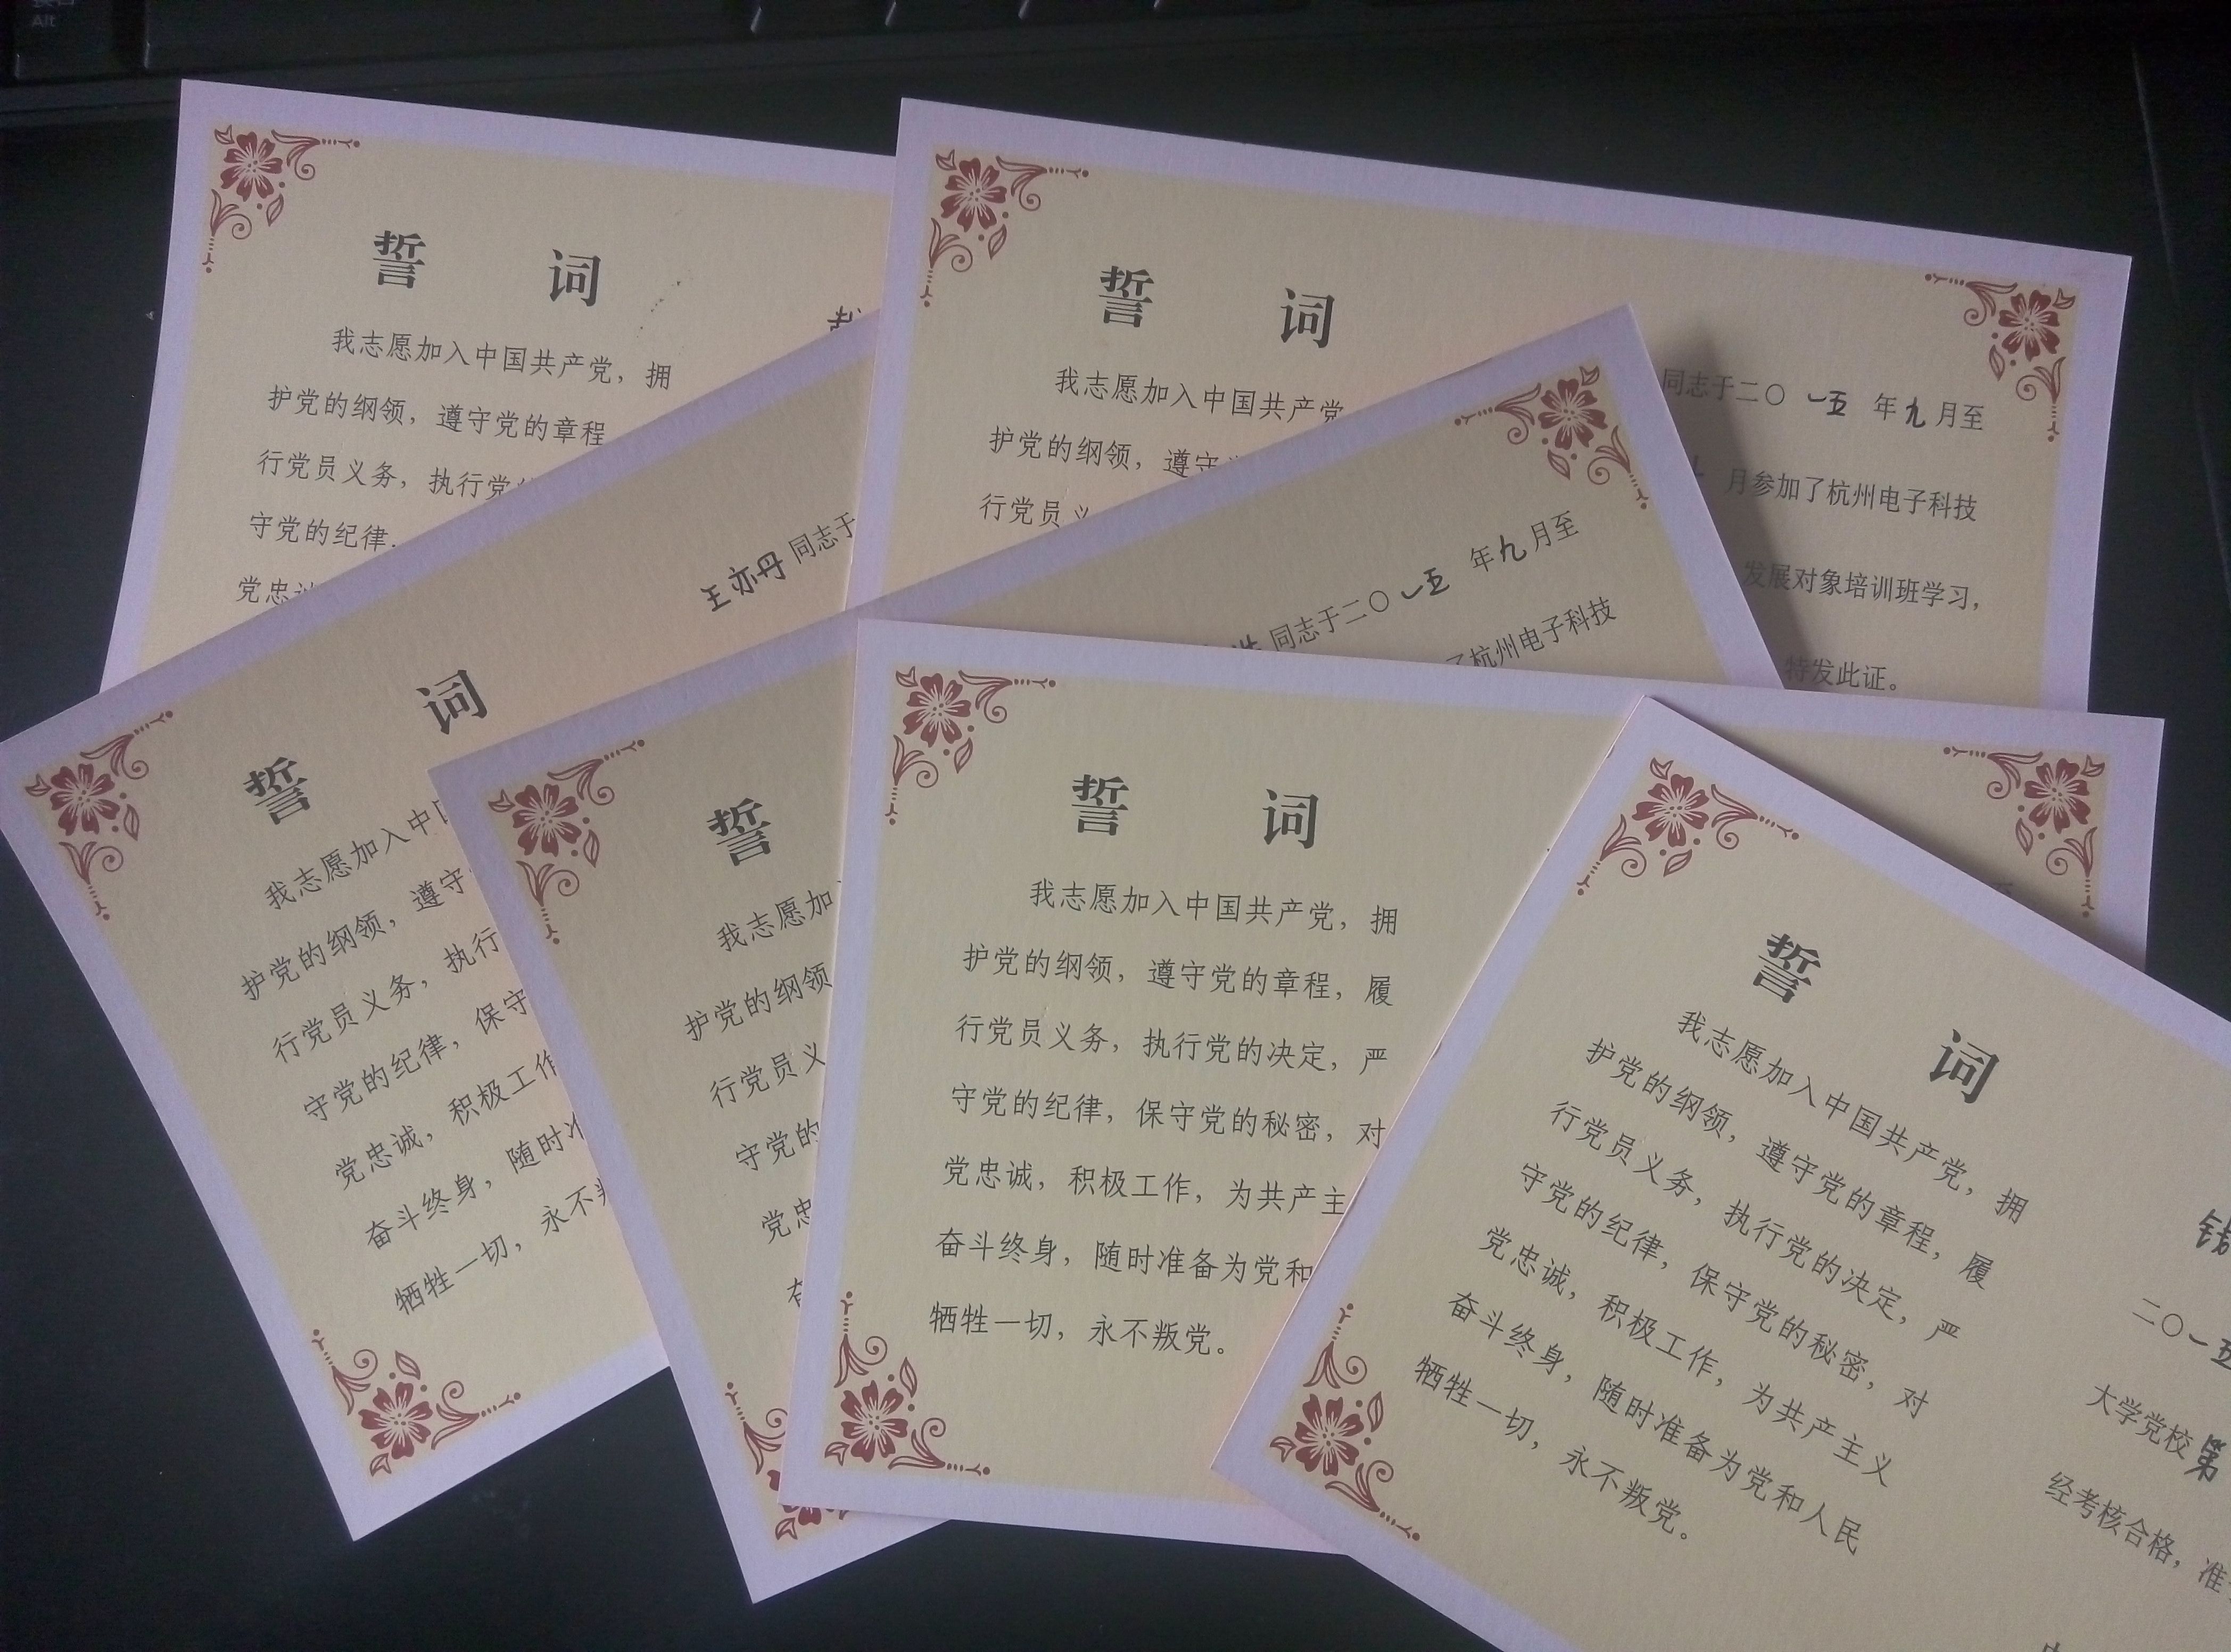 Alt
誓 词
我志愿加入中国共产党，拥
护党的纲领，遵守党的章程
行党员义务，执行党
守党的纪律
党忠
誓 词
我志愿加入中国共产党
护党的纲领，遵守
行党员义
同志于二〇一五年九月至
月参加了杭州电子科技
发展对象培训班学习，
特发此证。
王亦丹同志于
誓 词
我志愿加入中
护党的纲领，遵守
行党员义务，执行
守党的纪律，保守
党忠诚，积极工作
奋斗终身，随时准
牺牲一切，永不
同志于二〇一五年九月至
了杭州电子科技
誓
我志愿加
护党的纲领
行党员义
守党的
党忠
誓 词
我志愿加入中国共产党，拥
护党的纲领，遵守党的章程，履
行党员义务，执行党的决定，严
守党的纪律，保守党的秘密，对
党忠诚，积极工作，为共产主
奋斗终身，随时准备为党和
牺牲一切，永不叛党。
誓 词
我志愿加入中国共产党，拥
护党的纲领，遵守党的章程，履
行党员义务，执行党的决定，严
守党的纪律，保守党的秘密，对
党忠诚，积极工作，为共产主义
奋斗终身，随时准备为党和人民
牺牲一切，永不叛党。
二〇一五
大学党校第
经考核合格，准